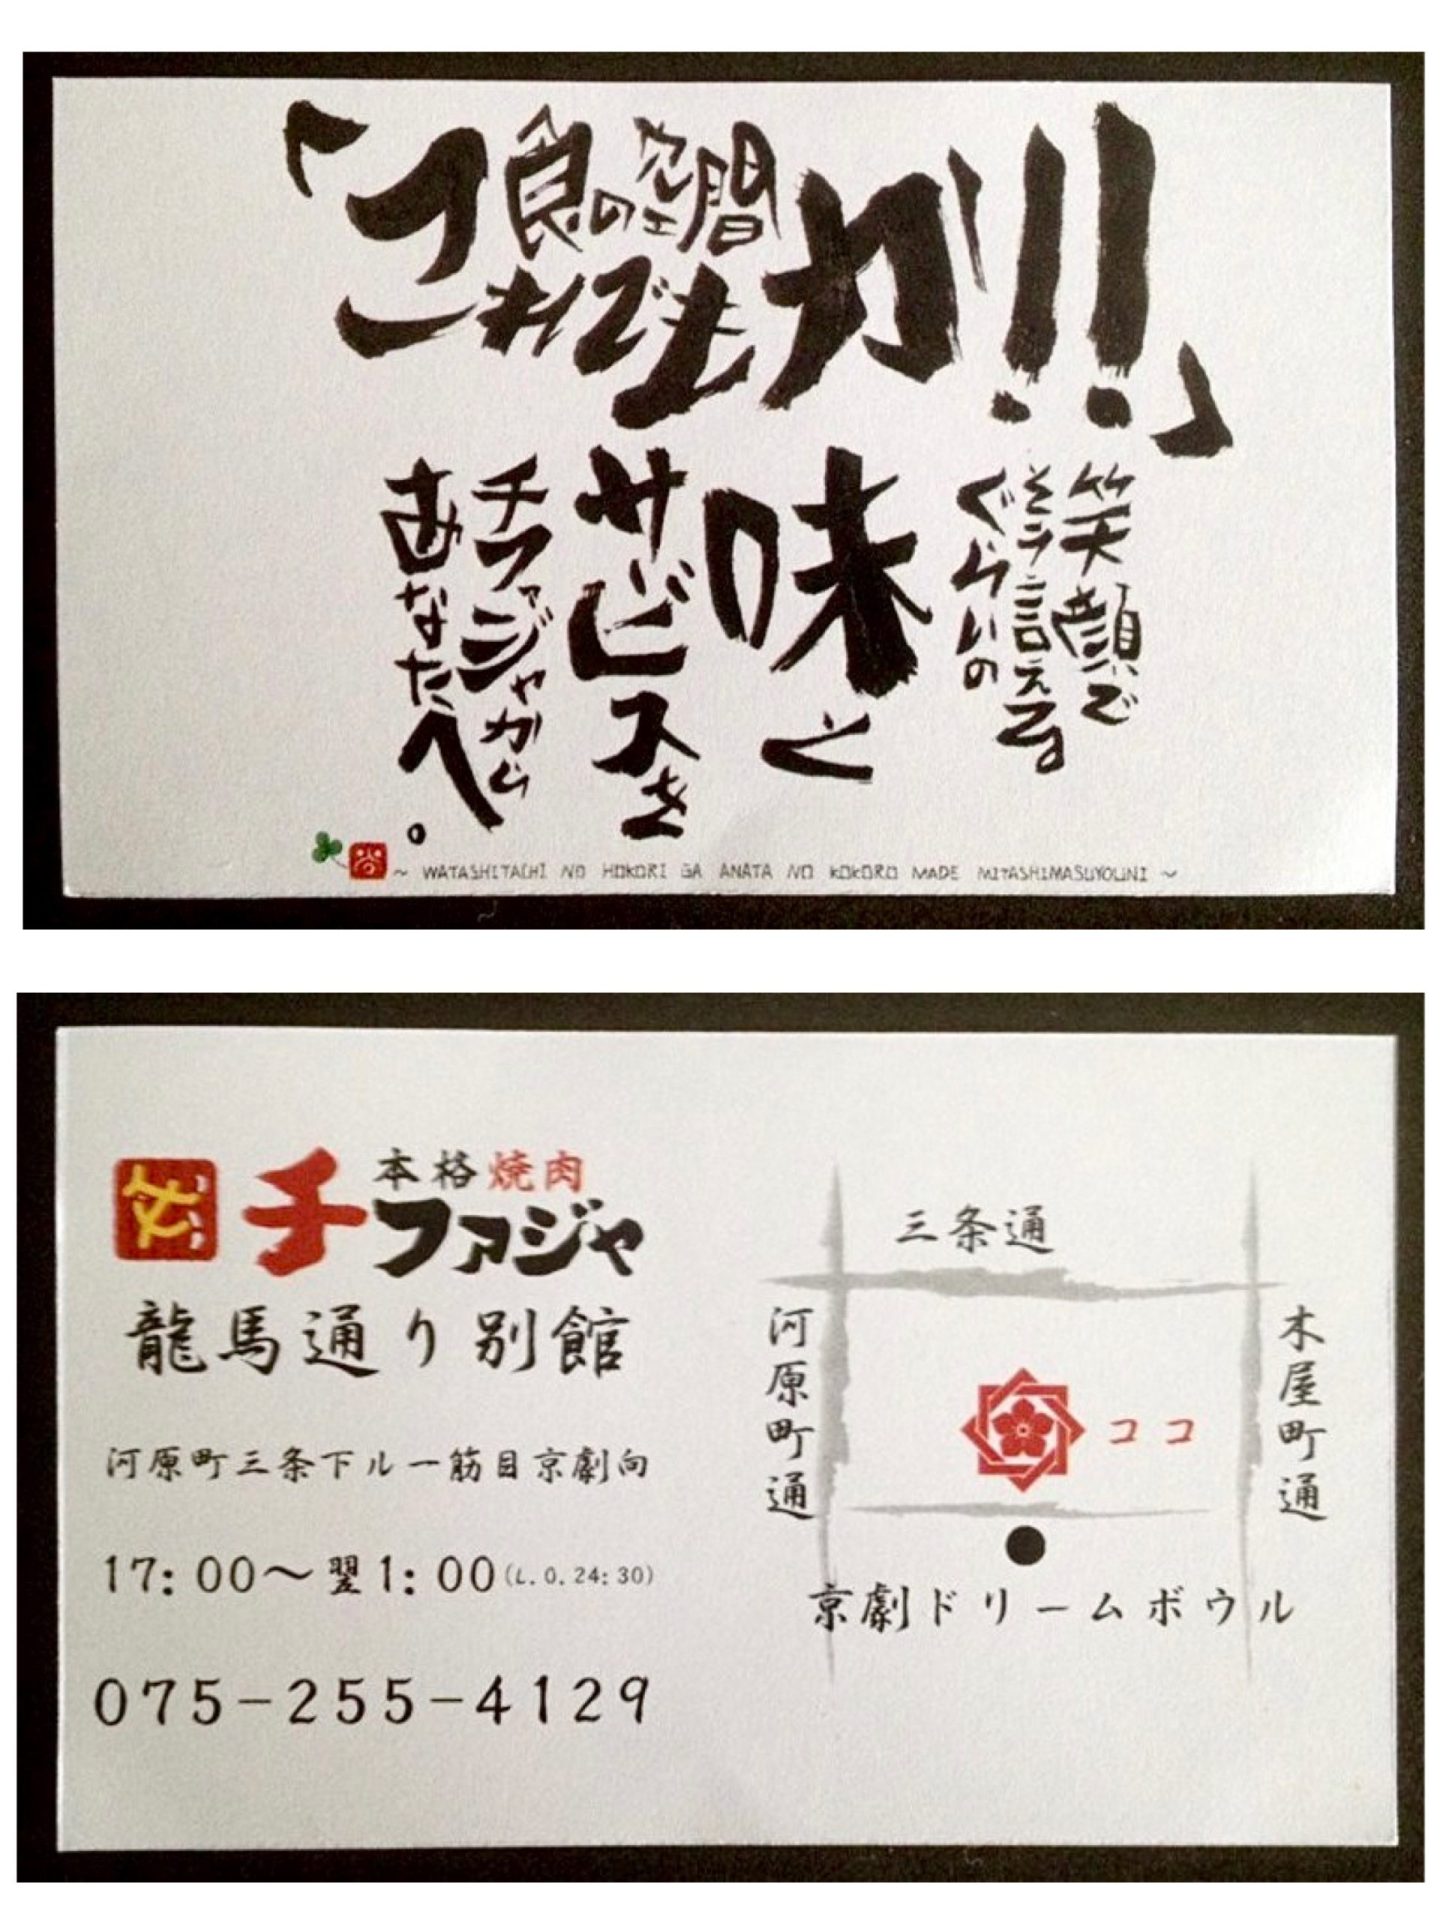 「これでもカ!!」
食の空間
笑顔で
そう言える
ぐらいの
味と
サービスを
チファジャから
あなたへ。
~ WATASHITACHI NO HOKORI GA ANATA NO KOKORO MADE MITASHIMASUYOUNI ~
本格焼肉
チファジャ
龍馬通り別館
河原町三条下ル一筋目京劇向
17:00～翌1:00(L.O.24:30)
075-255-4129
三条通
河原町通
木屋町通
ココ
京劇ドリームボウル